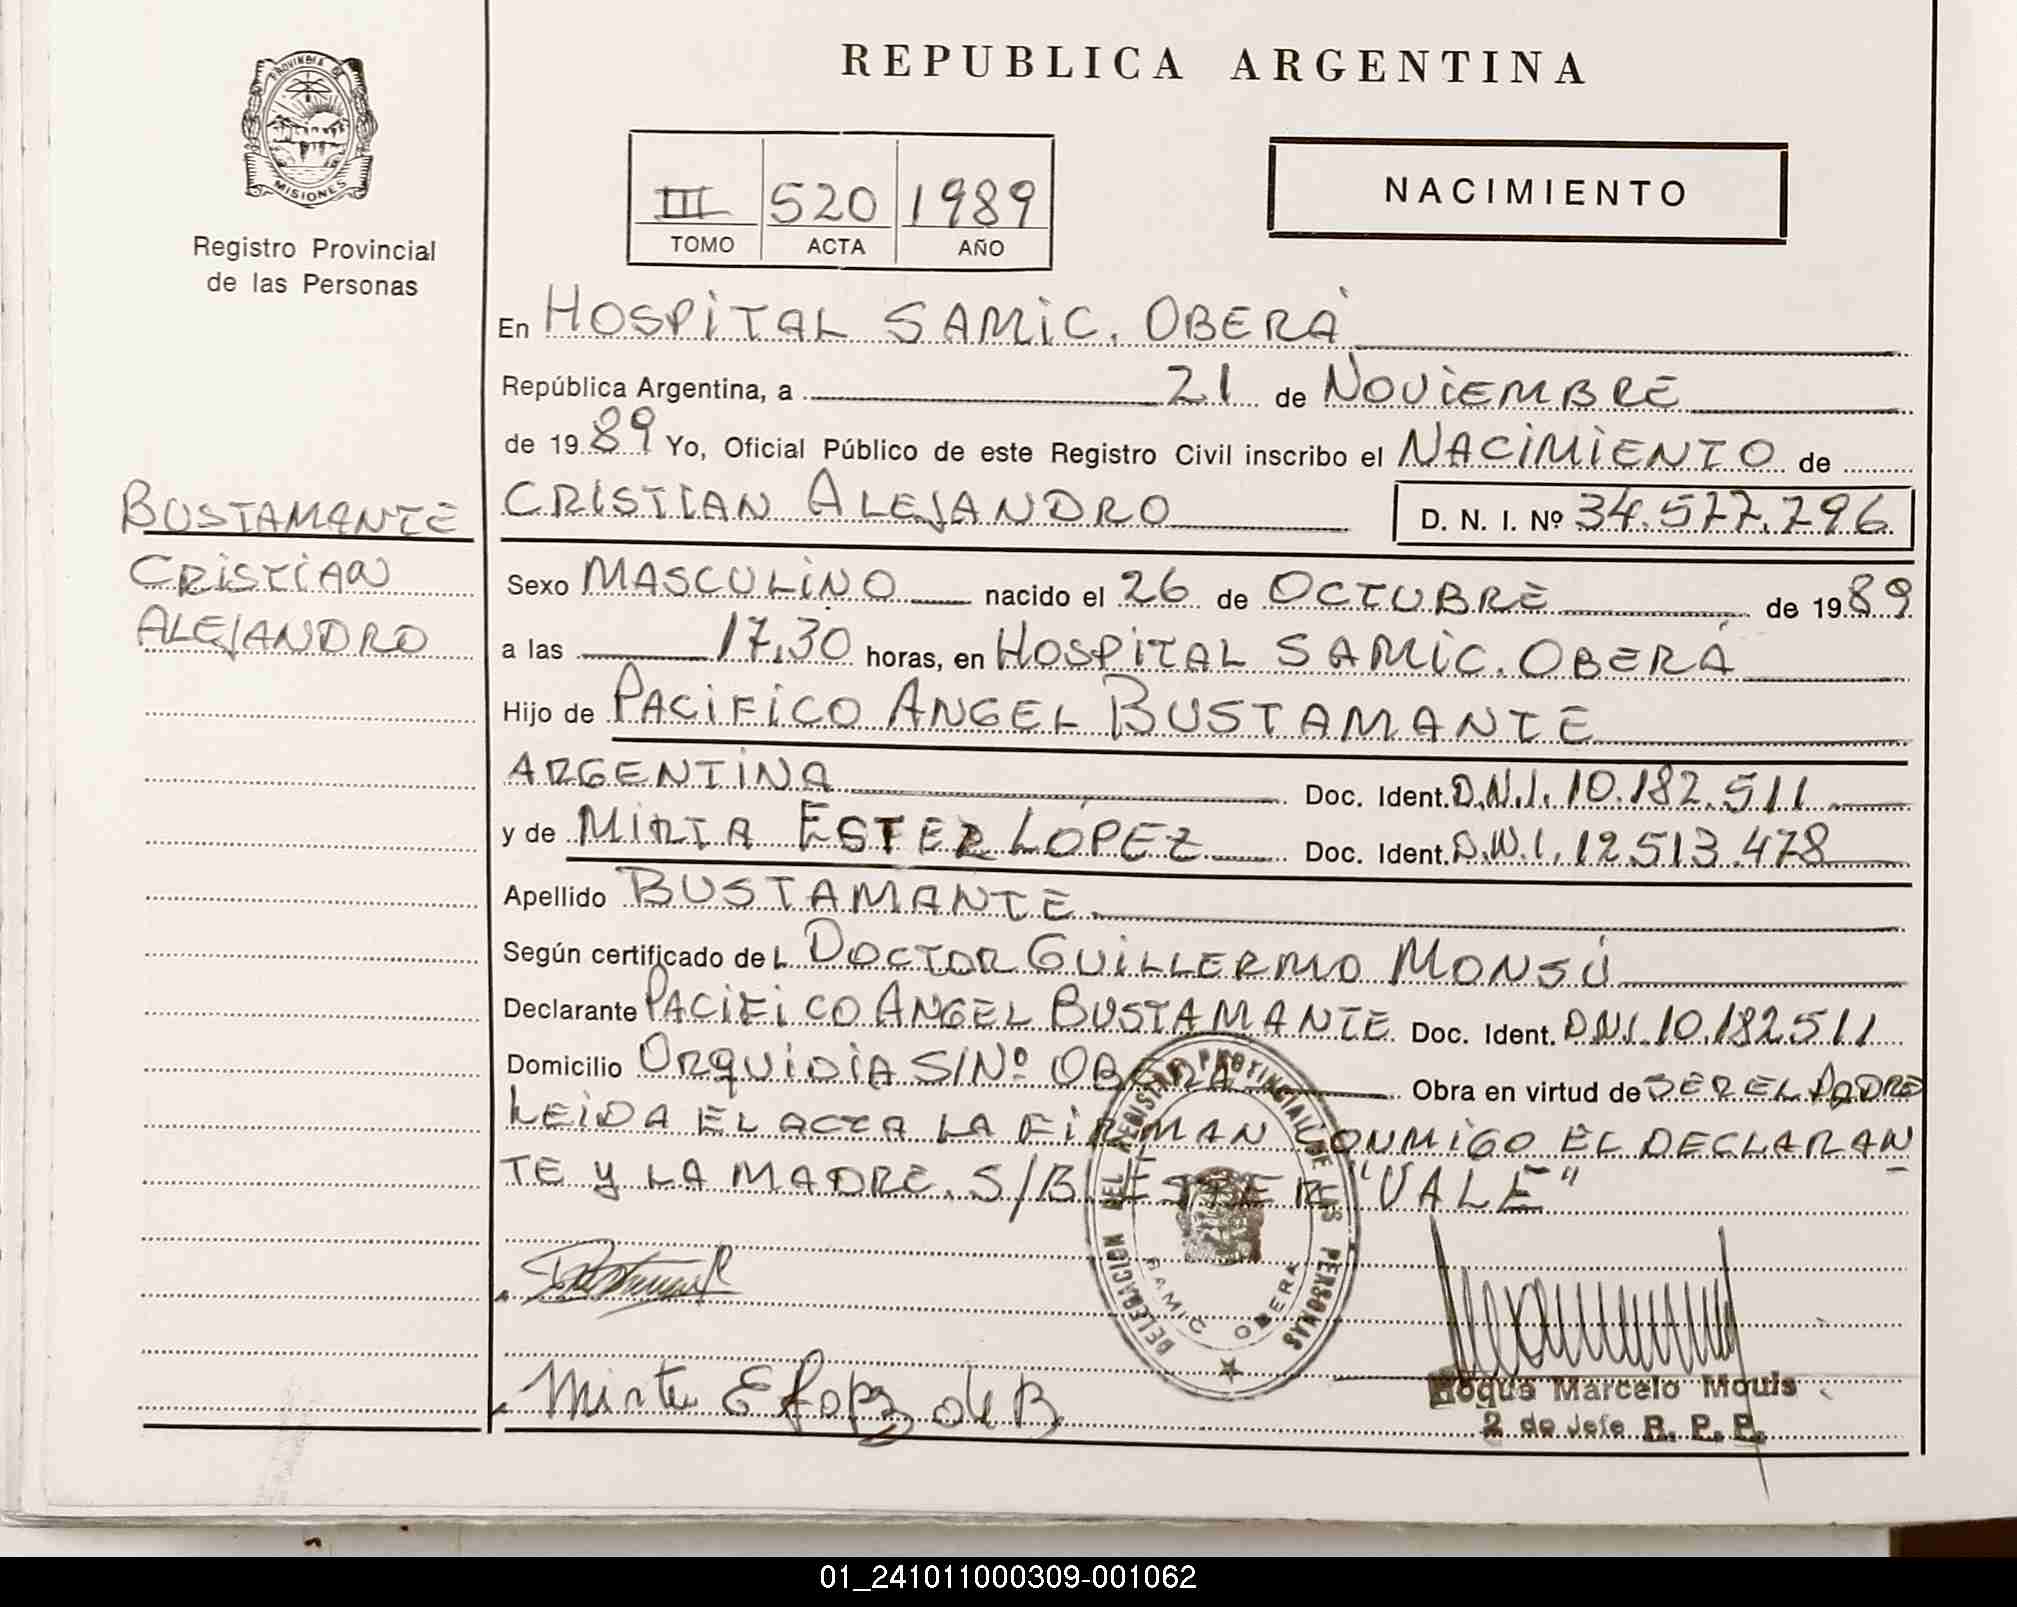 REPUBLICA ARGENTINA
PROVINCIA DE
MISIONES
Registro Provincial
de las Personas
III 520 1989
TOMO ACTA AÑO
NACIMIENTO
En HOSPITAL SAMIC. OBERÁ
República Argentina, a 21 de NOVIEMBRE
de 1989 Yo, Oficial Público de este Registro Civil inscribo el NACIMIENTO de
BUSTAMANTE
CRISTIAN
ALEJANDRO
CRISTIAN ALEJANDRO D. N. I. Nº 34.577.796
Sexo MASCULINO nacido el 26 de OCTUBRE de 1989
a las 17,30 horas, en HOSPITAL SAMIC. OBERÁ
Hijo de PACIFICO ANGEL BUSTAMANTE
ARGENTINA Doc. Ident. D.N.I. 10.182.511
y de MIRTA ESTER LOPEZ Doc. Ident. D.N.I. 12.513.478
Apellido BUSTAMANTE
Según certificado del DOCTOR GUILLERMO MONSÚ
Declarante PACIFICO ANGEL BUSTAMANTE Doc. Ident. D.N.I. 10.182.511
Domicilio ORQUIDIA S/Nº OBERA Obra en virtud de SER EL PADRE
LEIDA EL ACTA LA FIRMAN CONMIGO EL DECLARAN
TE Y LA MADRE. S/B: ESTER "VALE"
DELEGACION DEL REGISTRO PROVINCIAL DE LAS PERSONAS
SAMIC OBERA
Mirta E Lopez de B
Roque Marcelo Mouis
2 do Jefe R. P. P.
01_241011000309-001062